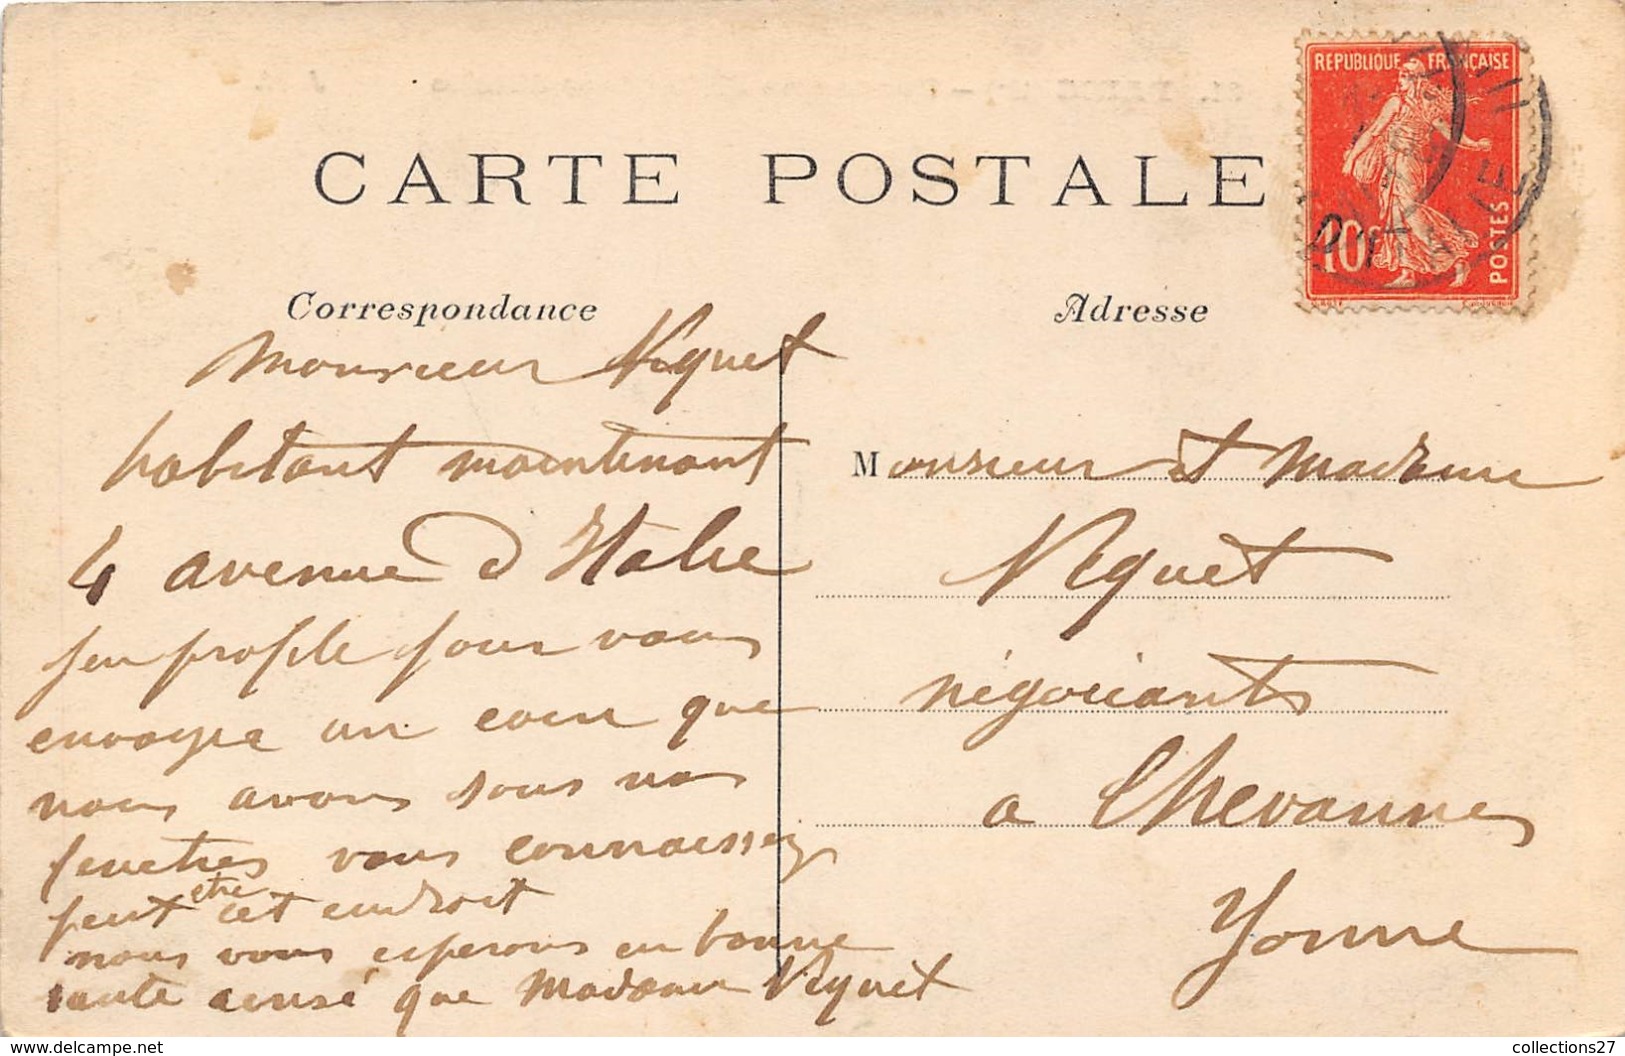 CARTE POSTALE
REPUBLIQUE FRANÇAISE
10c
POSTES
Correspondance
Monsieur Viquet
habitant maintenant
4 avenue d Italie
jen profite pour vous
envoyer un coin que
nous avons sous nos
fenetres vous connaissez
peut etre cet endroit
nous vous esperons en bonne
sante ainsi que Madame Viquet
Adresse
Monsieur et Madame
Viquet
négociants
a Chevannes
Yonne
collections27